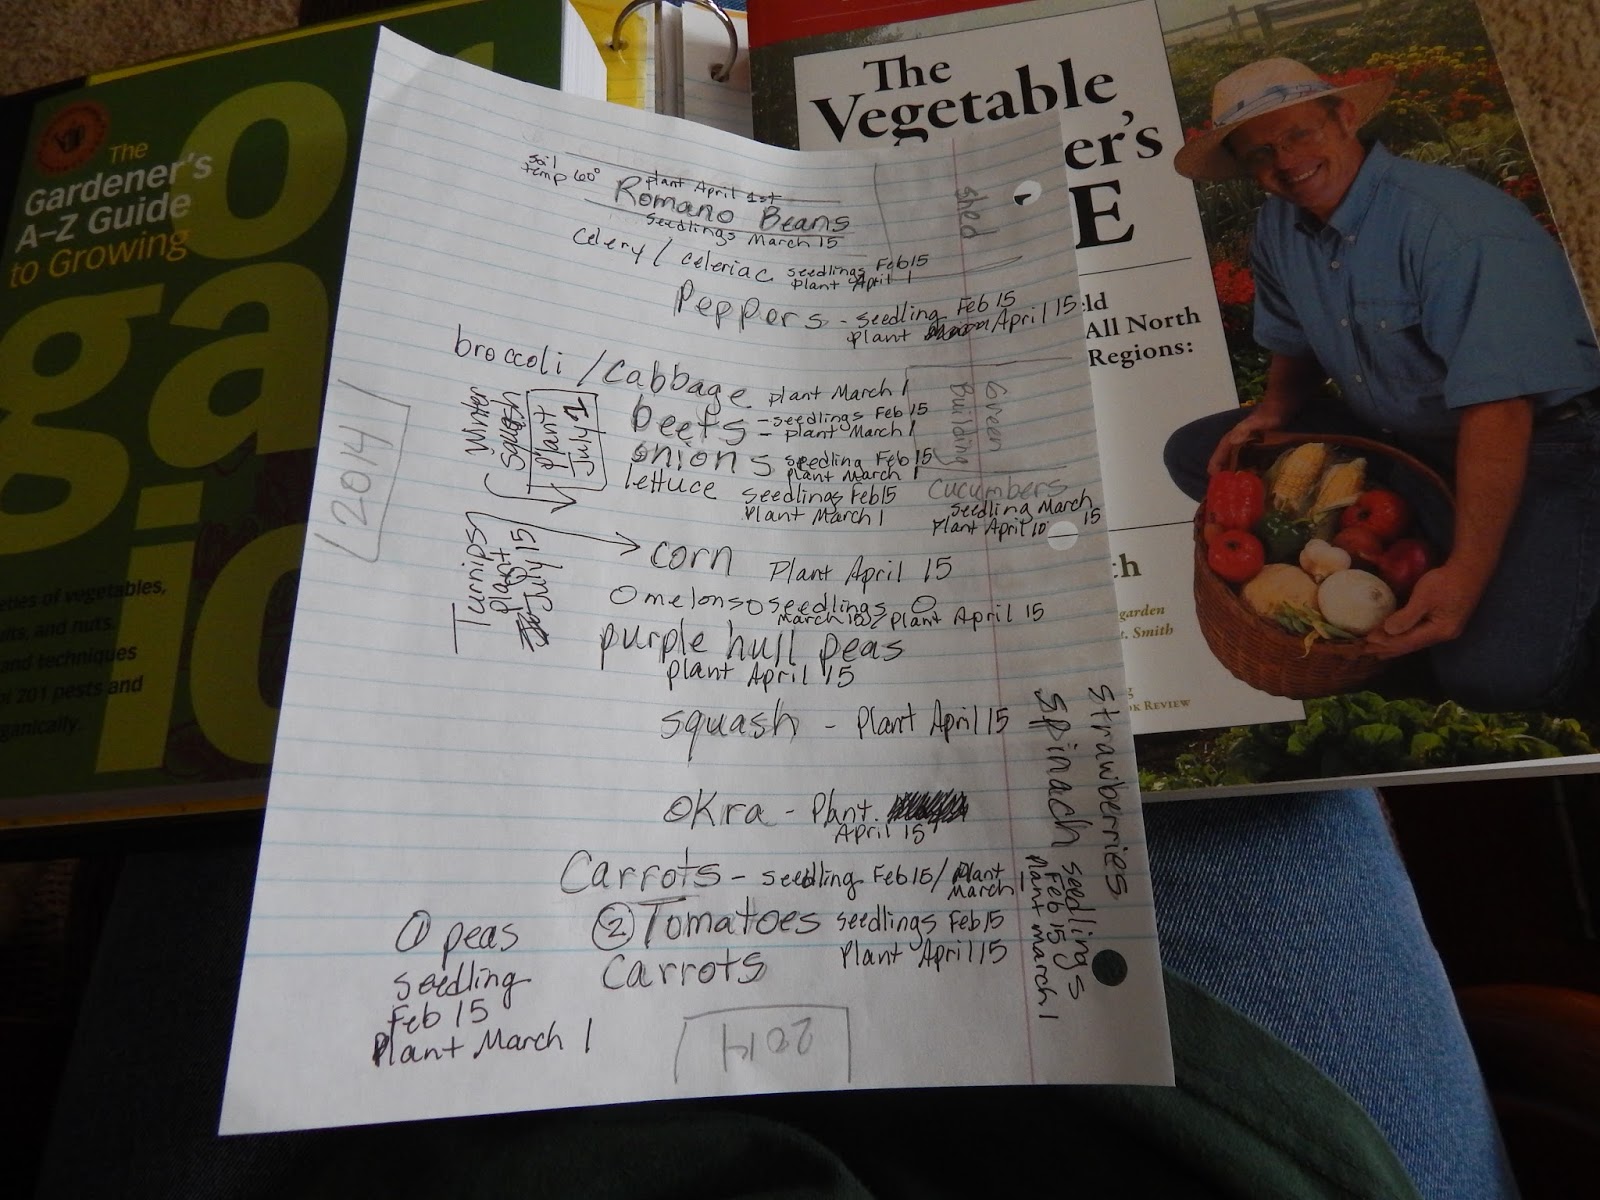 The
Gardener's
A-Z Guide
to Growing
o
ga
ic
eties of vegetables,
uits, and nuts.
and techniques
of 201 pests and
ganically.
The
Vegetable
er's
E
eld
All North
Regions:
th
garden
t. Smith
OK REVIEW
soil
temp 60°
plant April 1st
Romano Beans
seedlings March 15
shed
celery / celeriac seedlings Feb 15
plant April 1
Peppers - seedling Feb 15
plant April 15
broccoli / cabbage plant March 1
beets - seedlings Feb 15
- plant March 1
onions seedling Feb 15
plant March 1
lettuce seedlings Feb 15
Plant March 1
Green
Building
cucumbers
seedling March 15
Plant April 10
Winter
Squash
Plant
July 1
Turnips
plant
July 15
2014
corn Plant April 15
melons seedlings
March 15 / plant April 15
purple hull peas
plant April 15
squash - Plant April 15
okra - Plant
April 15
Carrots - seedling Feb 15 / Plant
March 1
① peas
seedling
Feb 15
Plant March 1
② Tomatoes seedlings Feb 15
Plant April 15
carrots
strawberries
spinach seedlings
Feb 15
plant march 1
2014